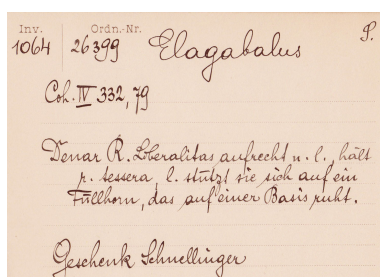 Inv. Ordn.-Nr.
1064 26399 Elagabalus S.
Coh. IV 332, 79
Denar R. Liberalitas aufrecht n. l., hält
r. tessera, l. stützt sie sich auf ein
Füllhorn, das auf einer Basis ruht.
Geschenk Schnellinger